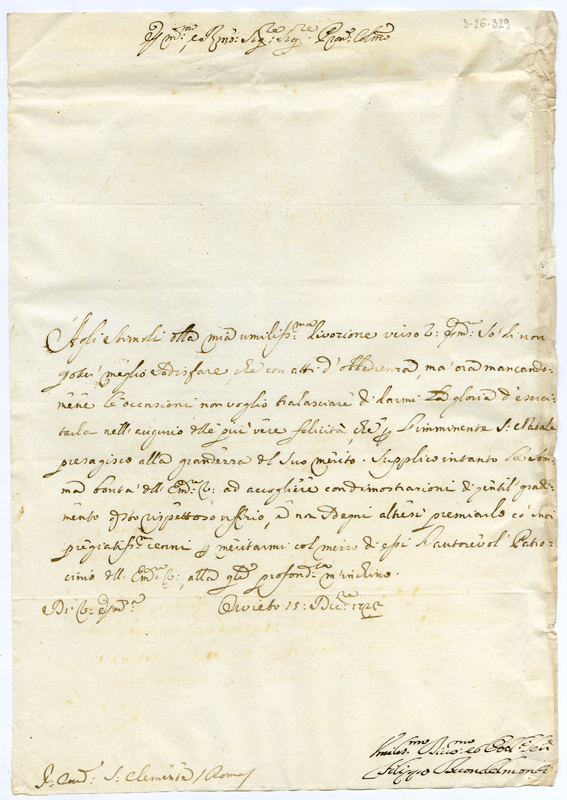 3-26-329
Em:mo, e Rmo: Sig:re Sig:re Pron: Colmo
Agli stimoli della mia umiliss:ma divozione verso V: Em:a so di non
poter meglio sodisfare, che con atti d'obbedienza, ma ora mancando=
mene le occasioni non voglio tralasciare di darmi la gloria d'eserci=
tarla nell'augurio delle più vere felicità, che p l'imminente S: Natale
presagisco alla grandezza del Suo merito. Supplico intanto la som=
ma bontà dell'Em:a V: ad accogliere con dimostrazioni di gentil gradi=
mento questo rispettoso uffizio, e non sdegni altresì premiarlo co' suoi
pregiatiss:mi cenni p meritarmi col mezzo di essi l'autorevol' Patro=
cinio dell'Em:a V:, alla qle profond:te m'inchino.
Di V: Em:a Orvieto 15: Dic:re
Umilis:mo Div:mo ed Obbl:
Filippo Buondelmonti
S: Clemente / Roma